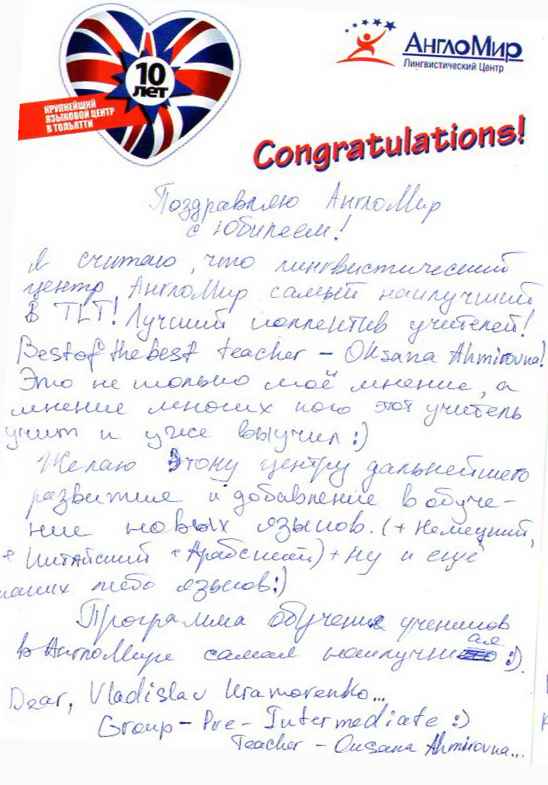 10
лет
КРУПНЕЙШИЙ
ЯЗЫКОВОЙ ЦЕНТР
В ТОЛЬЯТТИ
АнглоМир
Лингвистический Центр
Congratulations!
Поздравляю АнглоМир
с Юбилеем!
Я считаю, что лингвистический
центр АнглоМир самый наилучший
в TLT! Лучший коллектив учителей!
Best of the best teacher - Oksana Ahmirovna!
Это не только моё мнение, а
мнение многих кого этот учитель
учит и уже выучил :)
Желаю Этому центру дальнейшего
развития и добавление в обуче-
ние новых языков. (+ Немецкий,
+ Китайский + Арабский) + ну и ещё
каких либо языков :)
Программа обучения учеников
в АнглоМире самая наилучшая :).
Dear, Vladislav Kramorenko...
Group - Pre - Intermediate :)
Teacher - Oksana Ahmirovna...